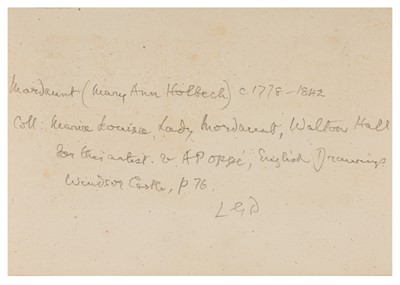 Mordaunt (Mary Ann Holbech) c 1778-1842
Coll: Maria Louisa, Lady Mordaunt, Walton Hall
For this artist. v A P Oppé, English Drawings
Windsor Castle, p 76.
L G D